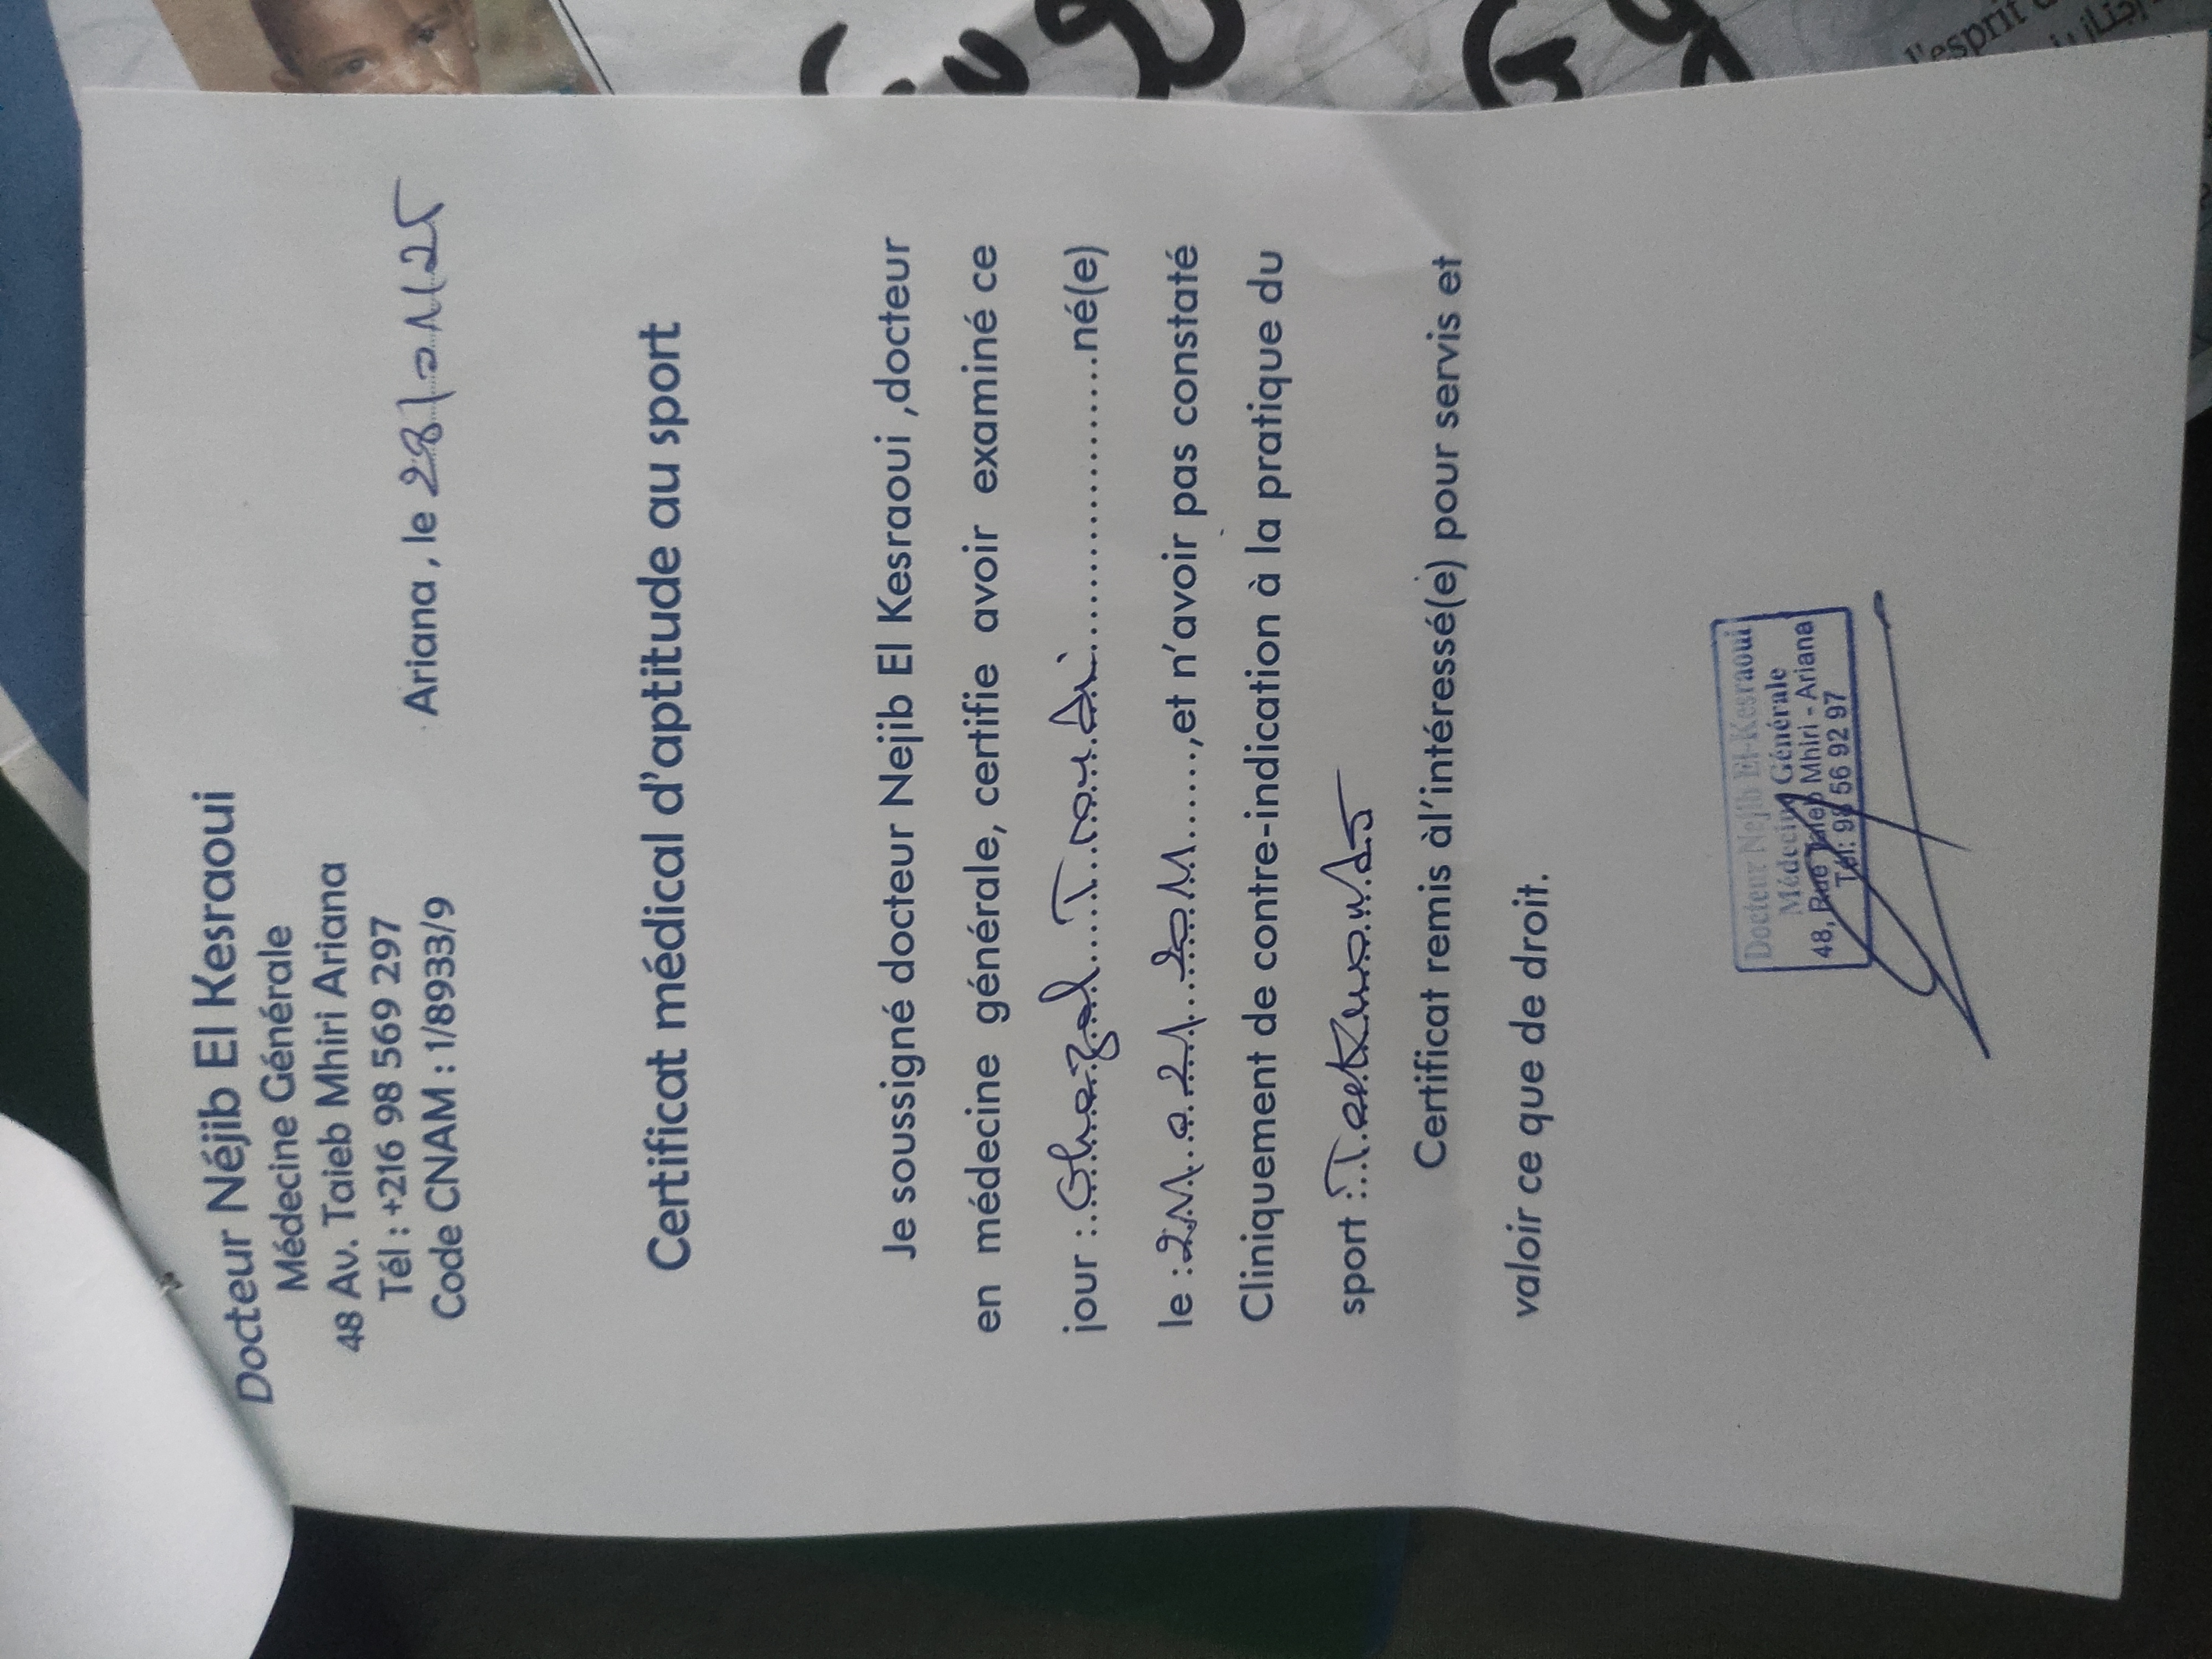 Docteur Néjib El Kesraoui
Médecine Générale
48 Av. Taieb Mhiri Ariana
Tél : +216 98 569 297
Code CNAM : 1/8933/9
Ariana , le 28/01/25
Certificat médical d'aptitude au sport
Je soussigné docteur Nejib El Kesraoui ,docteur
en médecine générale, certifie avoir examiné ce
jour :.Ghazel...........né(e)
le :.....,et n'avoir pas constaté
Cliniquement de contre-indication à la pratique du
sport :.Taekwondo
Certificat remis àl'intéressé(e) pour servis et
valoir ce que de droit.
Docteur Nejib El-Kesraoui
Médecin Générale
48, Rue Taieb Mhiri - Ariana
Tél: 98 56 92 97
l'esprit